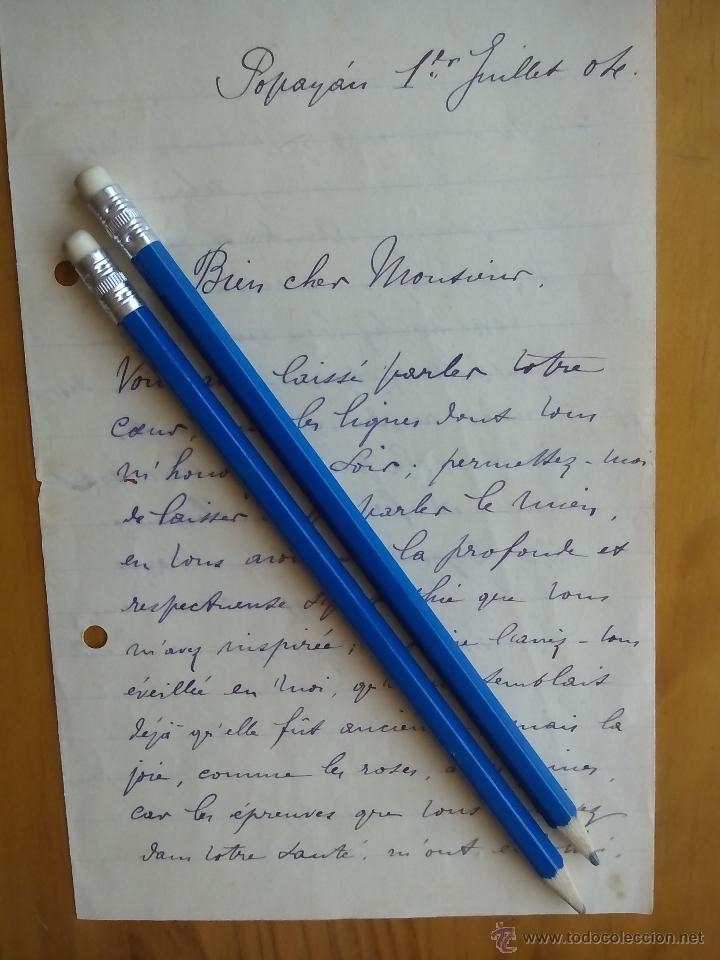 Popayán 1er Juillet 04.
Bien cher Monsieur,
laissé parler votre
cœur, les lignes dont vous
m'hono soir; permettez-moi
de laisser parler le mien,
en vous avo la profonde et
respectueuse thie que vous
m'avez inspirée; l'aviez-vous
éveillée en moi, qu' semblait
déjà qu'elle fût ancien mais la
joie, comme les roses, a ines,
car les épreuves que vous ez
dans votre santé, m'ont
www.todocoleccion.net